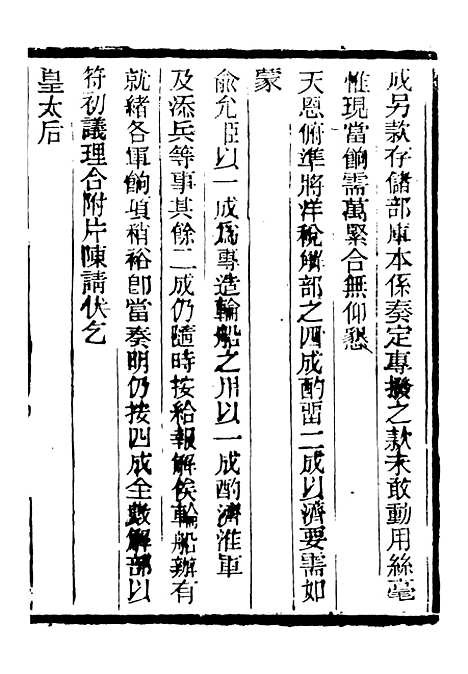 成另款存儲部庫本係奏定專撥之款未敢動用絲毫
惟現當餉需萬緊合無仰懇
天恩俯準將洋稅解部之四成酌留二成以濟要需如
蒙
俞允臣以一成爲專造輪船之用以一成酌濟淮軍
及添兵等事其餘二成仍隨時按給報解俟輪船辦有
就緒各軍餉項稍裕卽當奏明仍按四成全數解部以
符初議理合附片陳請伏乞
皇太后